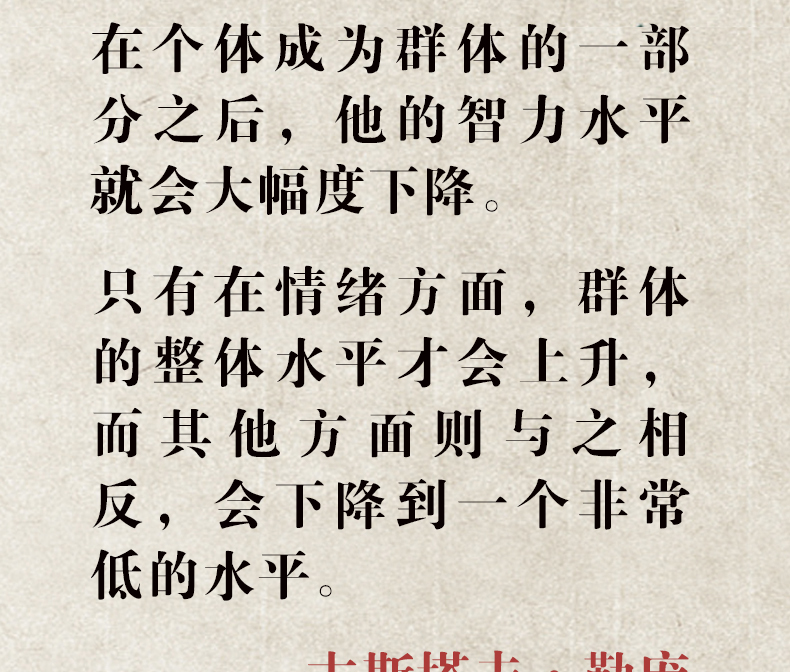 在个体成为群体的一部
分之后，他的智力水平
就会大幅度下降。
只有在情绪方面，群体
的整体水平才会上升，
而其他方面则与之相
反，会下降到一个非常
低的水平。
古斯塔夫·勒庞